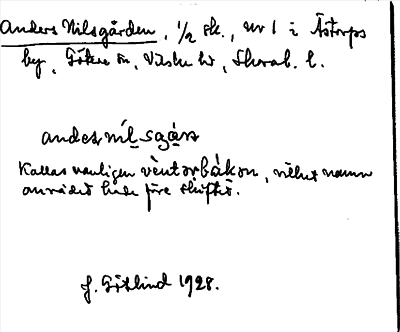 Anders Nilsgården, 1/2 sk., nr 1 i Åstorps
by, Götene sn, Vilske hd, Skarab. l.
andesnilsgárn
Kallas vanligen vèntorbákən, vilket namn
användes före skiftet.
J. Götlind 1928.